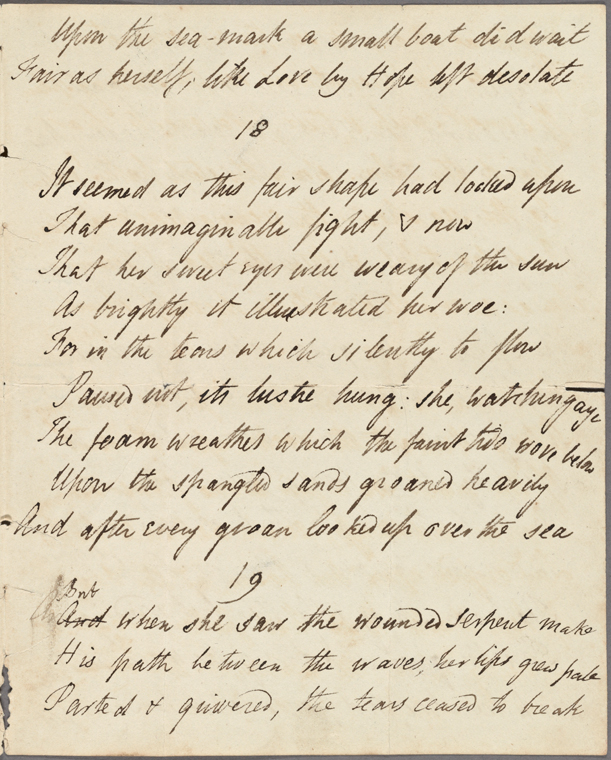 Upon the sea-mark a small boat did wait
Fair as herself, like Love by Hope left desolate
18
It seemed as this fair shape had looked upon
That unimaginable fight, & now
That her sweet eyes were weary of the sun
As brightly it illustrated her woe:
For in the tears which silently to flow
Paused not, its lustre hung: she, watching aye
The foam wreathes which the faint tide wove below
Upon the spangled sands groaned heavily
And after every groan looked up over the sea
19
But
And when she saw the wounded serpent make
His path between the waves, her lips grew pale
Parted & quivered, the tears ceased to break